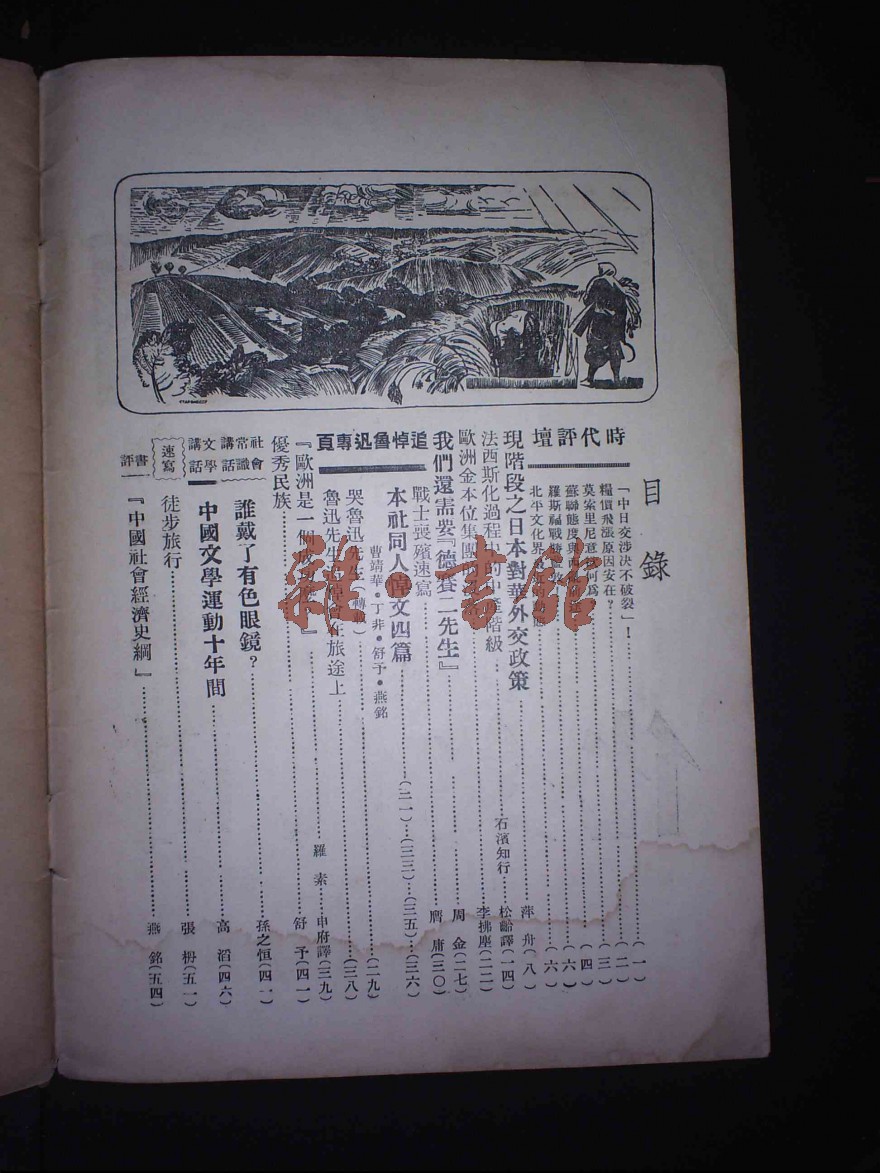 目錄
時代評壇
「中日交涉決不破裂」！……(一)
糧價飛漲原因安在？……(二)
莫索里尼意欲何爲……(三)
蘇聯態度與西……(四)
羅斯福戰勝……(六)
北平文化界……(六)
現階段之日本對華外交政策……萍舟(八)
法西斯化過程中的中產階級……石濱知行……松齡譯(一四)
歐洲金本位集團……李拂塵(二二)
追悼魯迅專頁
我們還需要『德賽二先生』……周金(二七)
戰士喪殯速寫……膺庸(三〇)
本社同人悼文四篇……(二一)…(三三)…(三五)…(三六)
曹靖華・丁非・舒予・燕銘
哭魯迅先生(轉載)……(二九)
魯迅先生在旅途上……(三八)
『歐洲是一個』……羅素……申府譯(三九)
優秀民族……舒予(四一)
社會常識講話
誰戴了有色眼鏡？……孫之恒(四一)
文學講話
中國文學運動十年間……高滔(四六)
速寫
徒步旅行……張枬(五一)
書評
『中國社會經濟史綱』……燕銘(五四)
雜・書館